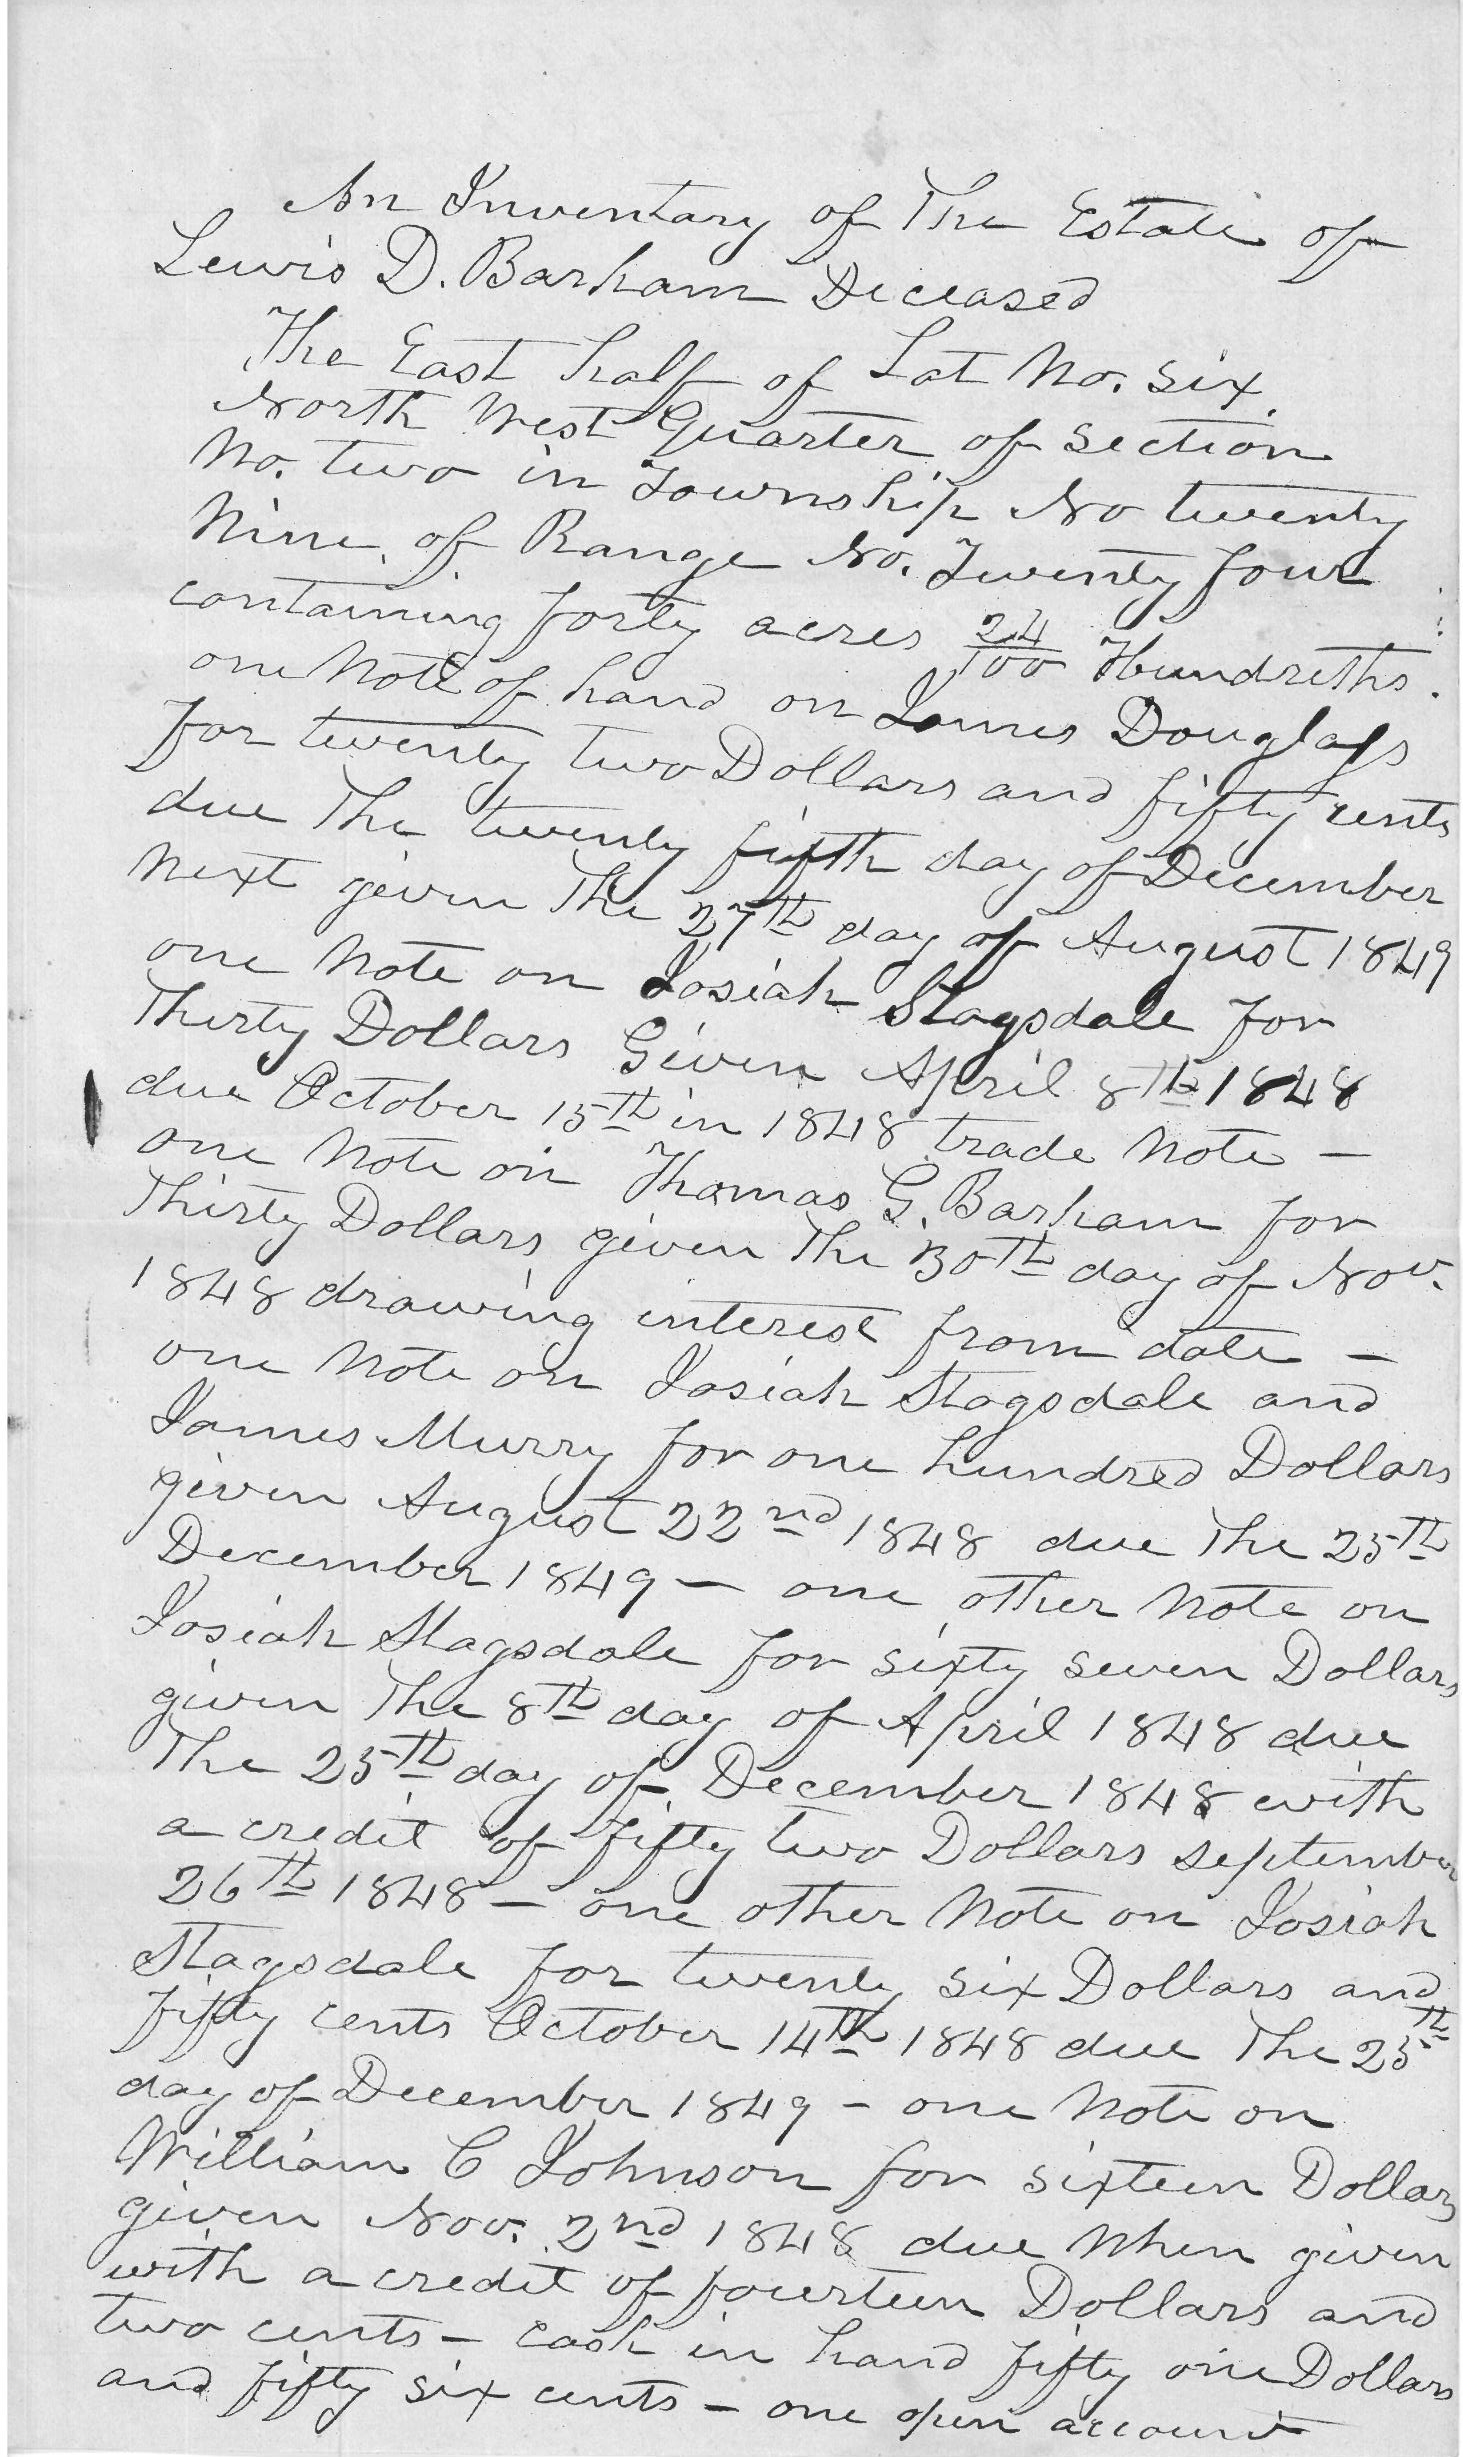 An Inventary of The Estate of
Lewis D. Barham Deceased
The East half of Lot No. six.
North West Quarter of section
No. two in Township No twenty
Nine, of Range No. Twenty four
containing forty acres 24/100 Hundreths.
one Note of hand on James Douglass
for twenty two Dollars and fifty cents
due The twenty fifth day of December
next given The 27th day of August 1849
one Note on Josiah Stagsdale for
Thirty Dollars Given April 8th 1848
due October 15th in 1848 trade Note —
one Note on Thomas G. Barham for
Thirty Dollars given The 30th day of Nov.
1848 drawing interest from date —
one Note on Josiah Stagsdale and
James Murry for one hundred Dollars
given August 22nd 1848 due The 25th
December 1849 — one other Note on
Josiah Stagsdale for sixty seven Dollars
given The 8th day of April 1848 due
The 25th day of December 1848 with
a credit of fifty two Dollars september
26th 1848 — one other Note on Josiah
Stagsdale for twenty six Dollars and
fifty cents October 14th 1848 due The 25th
day of December 1849 — one Note on
William C Johnson for sixteen Dollars
given Nov. 2nd 1848 due When given
with a credit of fourteen Dollars and
two cents — cash in hand fifty one Dollars
and fifty six cents — one open account